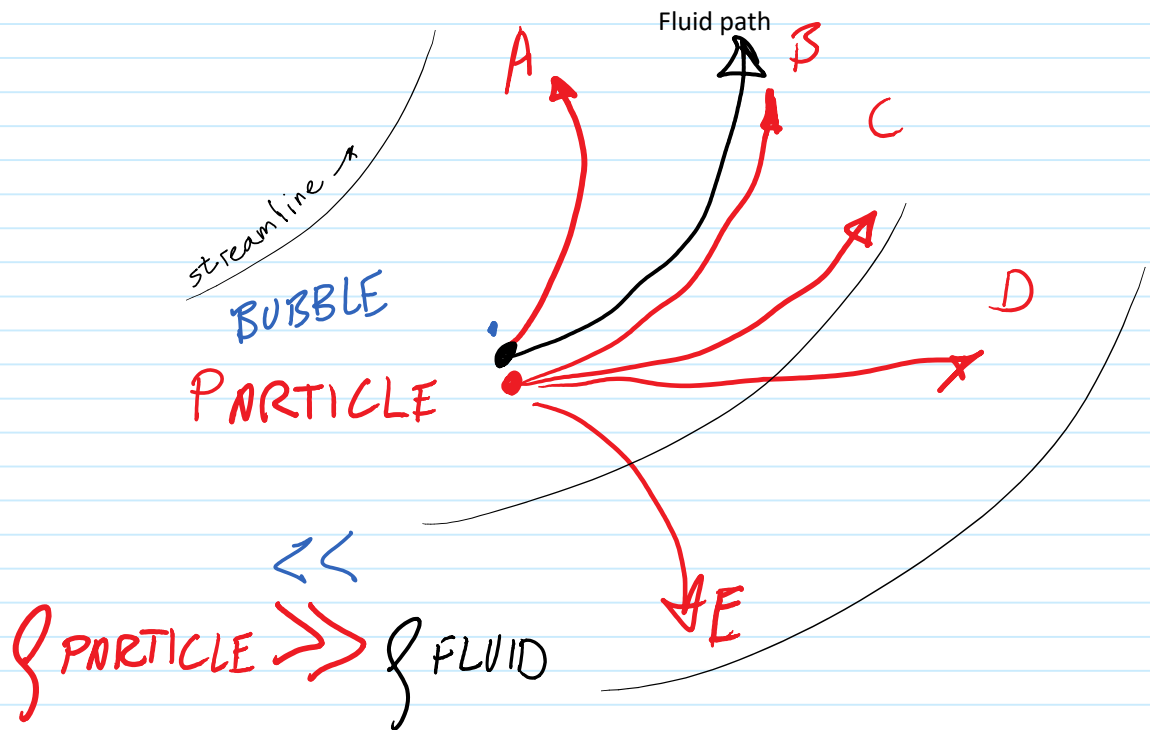 Fluid path
A
B
C
streamline
D
BUBBLE
PARTICLE
<<
ρ PARTICLE >> ρ FLUID
E